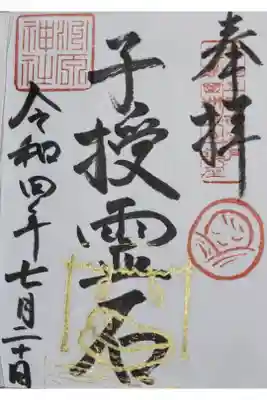 奉拝
子授霊石
令和四年七月二十日